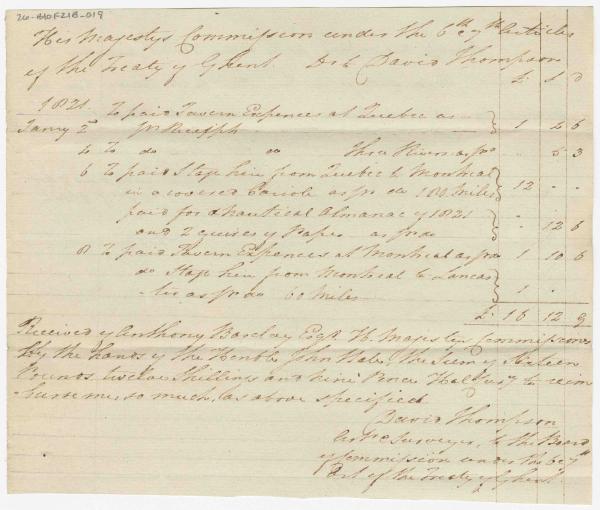 26-B40F21B-019
His Majestys Commission under the 6th & 7th Articles
of the Treaty of Ghent. Dr to David Thompson
£ s D
1821 To paid Tavern Expences at Quebec as
Janry 2d pr Receipt 1 4 6
4 To do do Three Rivers as pr do " 5 3
6 To paid Stage hire from Quebec to Montreal
in a covered Cariole as pr do 180 Miles 12 - -
paid for a Nautical Almanac of 1821
and 2 quires of Paper as pr do - 12 6
8 To paid Tavern Expences at Montreal as pr do 1 10 6
do Stage hire from Montreal to Lancas
-ter as pr do 60 Miles 1 -
£ 16 12 9
Received of Anthony Barclay Esqr H. Majestys Commissioner
by the hands of the Honble John Hale, the Sum of Sixteen
Pounds twelve Shillings and nine Pence to reim
burse me so much, as above specified
David Thompson
Astr & Surveyor, to the Board
of Commission under the 6 & 7th
Art of the Treaty of Ghent